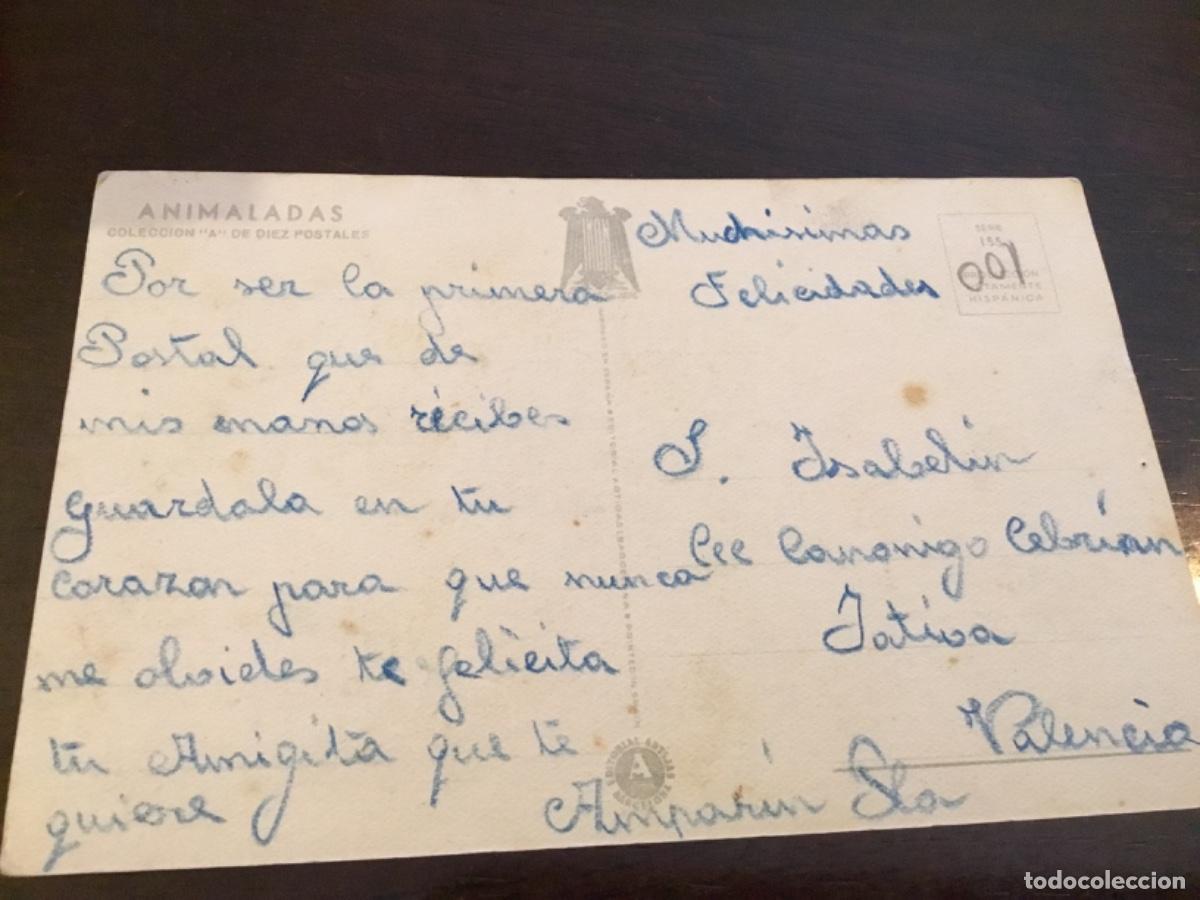 ANIMALADAS
COLECCION "A" DE DIEZ POSTALES
Por ser la primera
Postal que de
mis manos récibes
guardala en tu
corazon para que nunca
me olvides te felicita
tu Amigita que te
quiere
Amparin
Muchisimas
Felicidades
SERIE
155
001
HISPÁNICA
S. Isabelin
Cee Canonigo Cebrián
Jativa
Valencia
EDITORIAL ARTIGAS
BARCELONA
A
todocoleccion